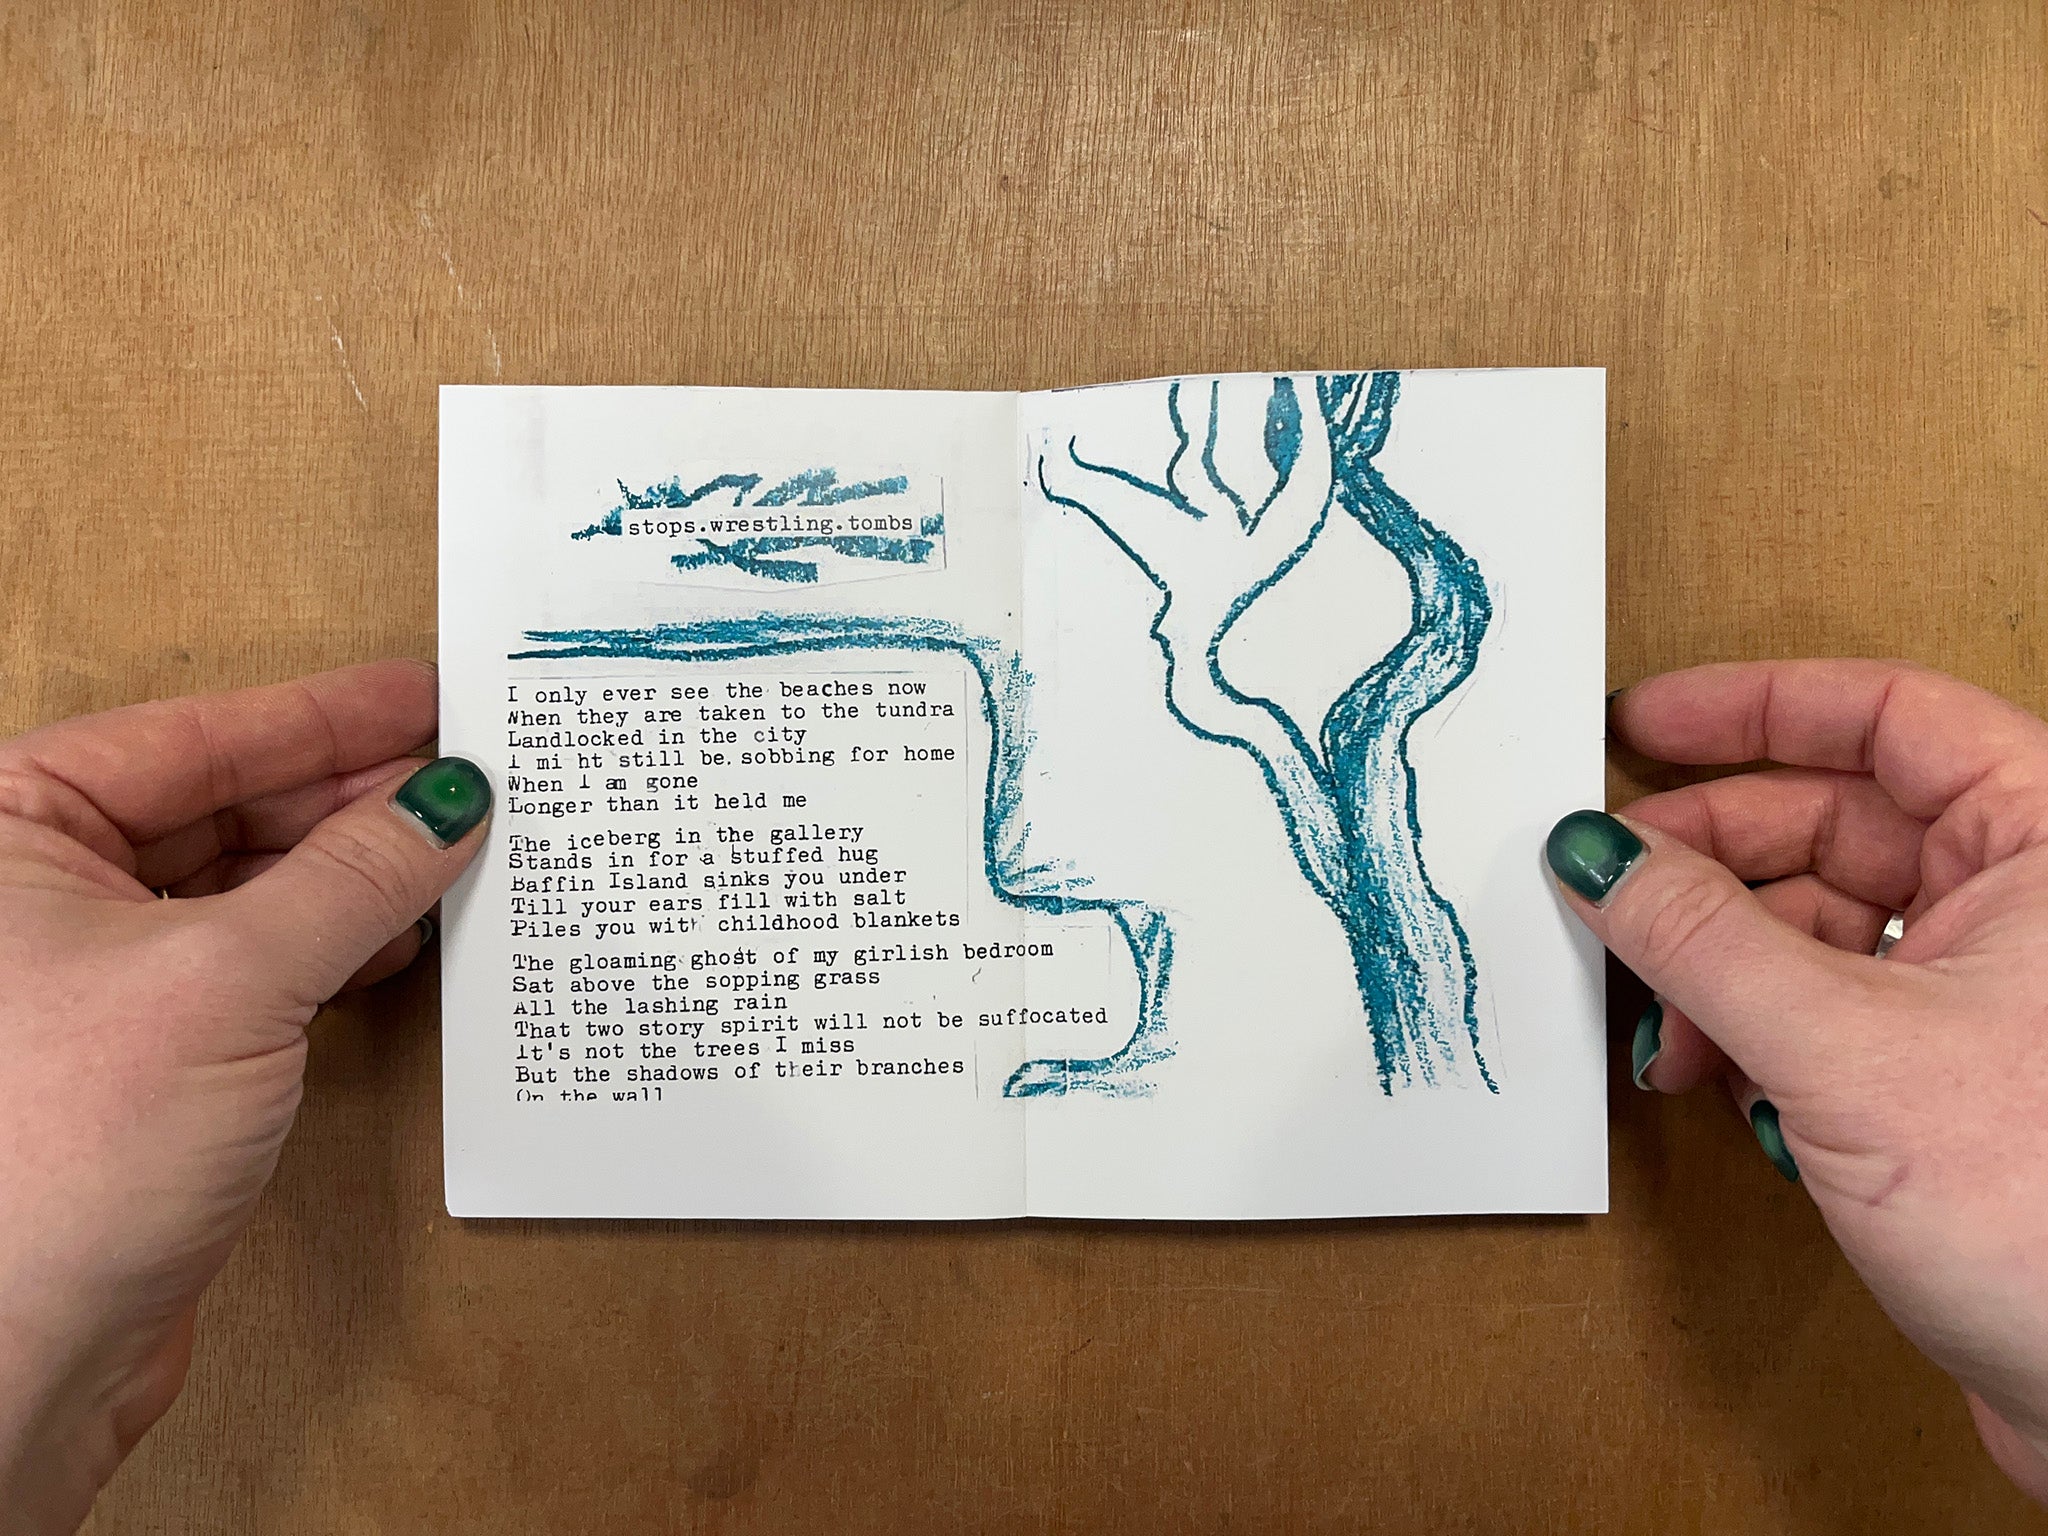 stops.wrestling.tombs
I only ever see the beaches now
When they are taken to the tundra
Landlocked in the city
I mi ht still be.sobbing for home
When I am gone
Longer than it held me
The iceberg in the gallery
Stands in for a stuffed hug
Baffin Island sinks you under
Till your ears fill with salt
Piles you with childhood blankets
The gloaming ghost of my girlish bedroom
Sat above the sopping grass
All the lashing rain
That two story spirit will not be suffocated
It's not the trees I miss
But the shadows of their branches
On the wall